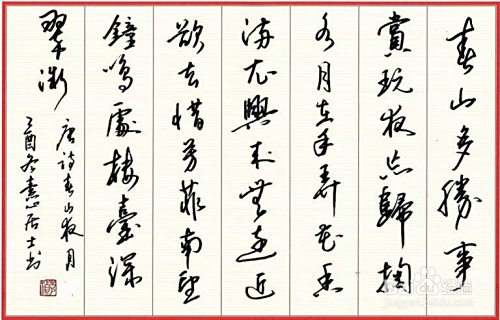 春山多勝事
賞玩夜忘歸掬
水月在手弄花香
滿衣興來無遠近
欲去惜芳菲南望
鐘鳴處樓臺深
翠微
唐詩春山夜月
乙酉冬居士书
Baidu经验
jingyan.baidu.com